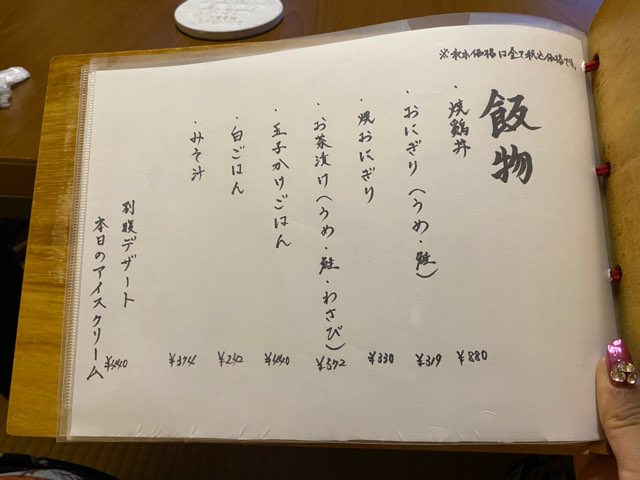 ※表示価格は全て税込価格です。
飯物
・焼鶏丼 ¥880
・おにぎり(うめ・鮭) ¥319
・焼おにぎり ¥330
・お茶漬け(うめ・鮭・わさび) ¥572
・玉子かけごはん ¥440
・白ごはん ¥242
・みそ汁 ¥374
別腹デザート
本日のアイスクリーム ¥440